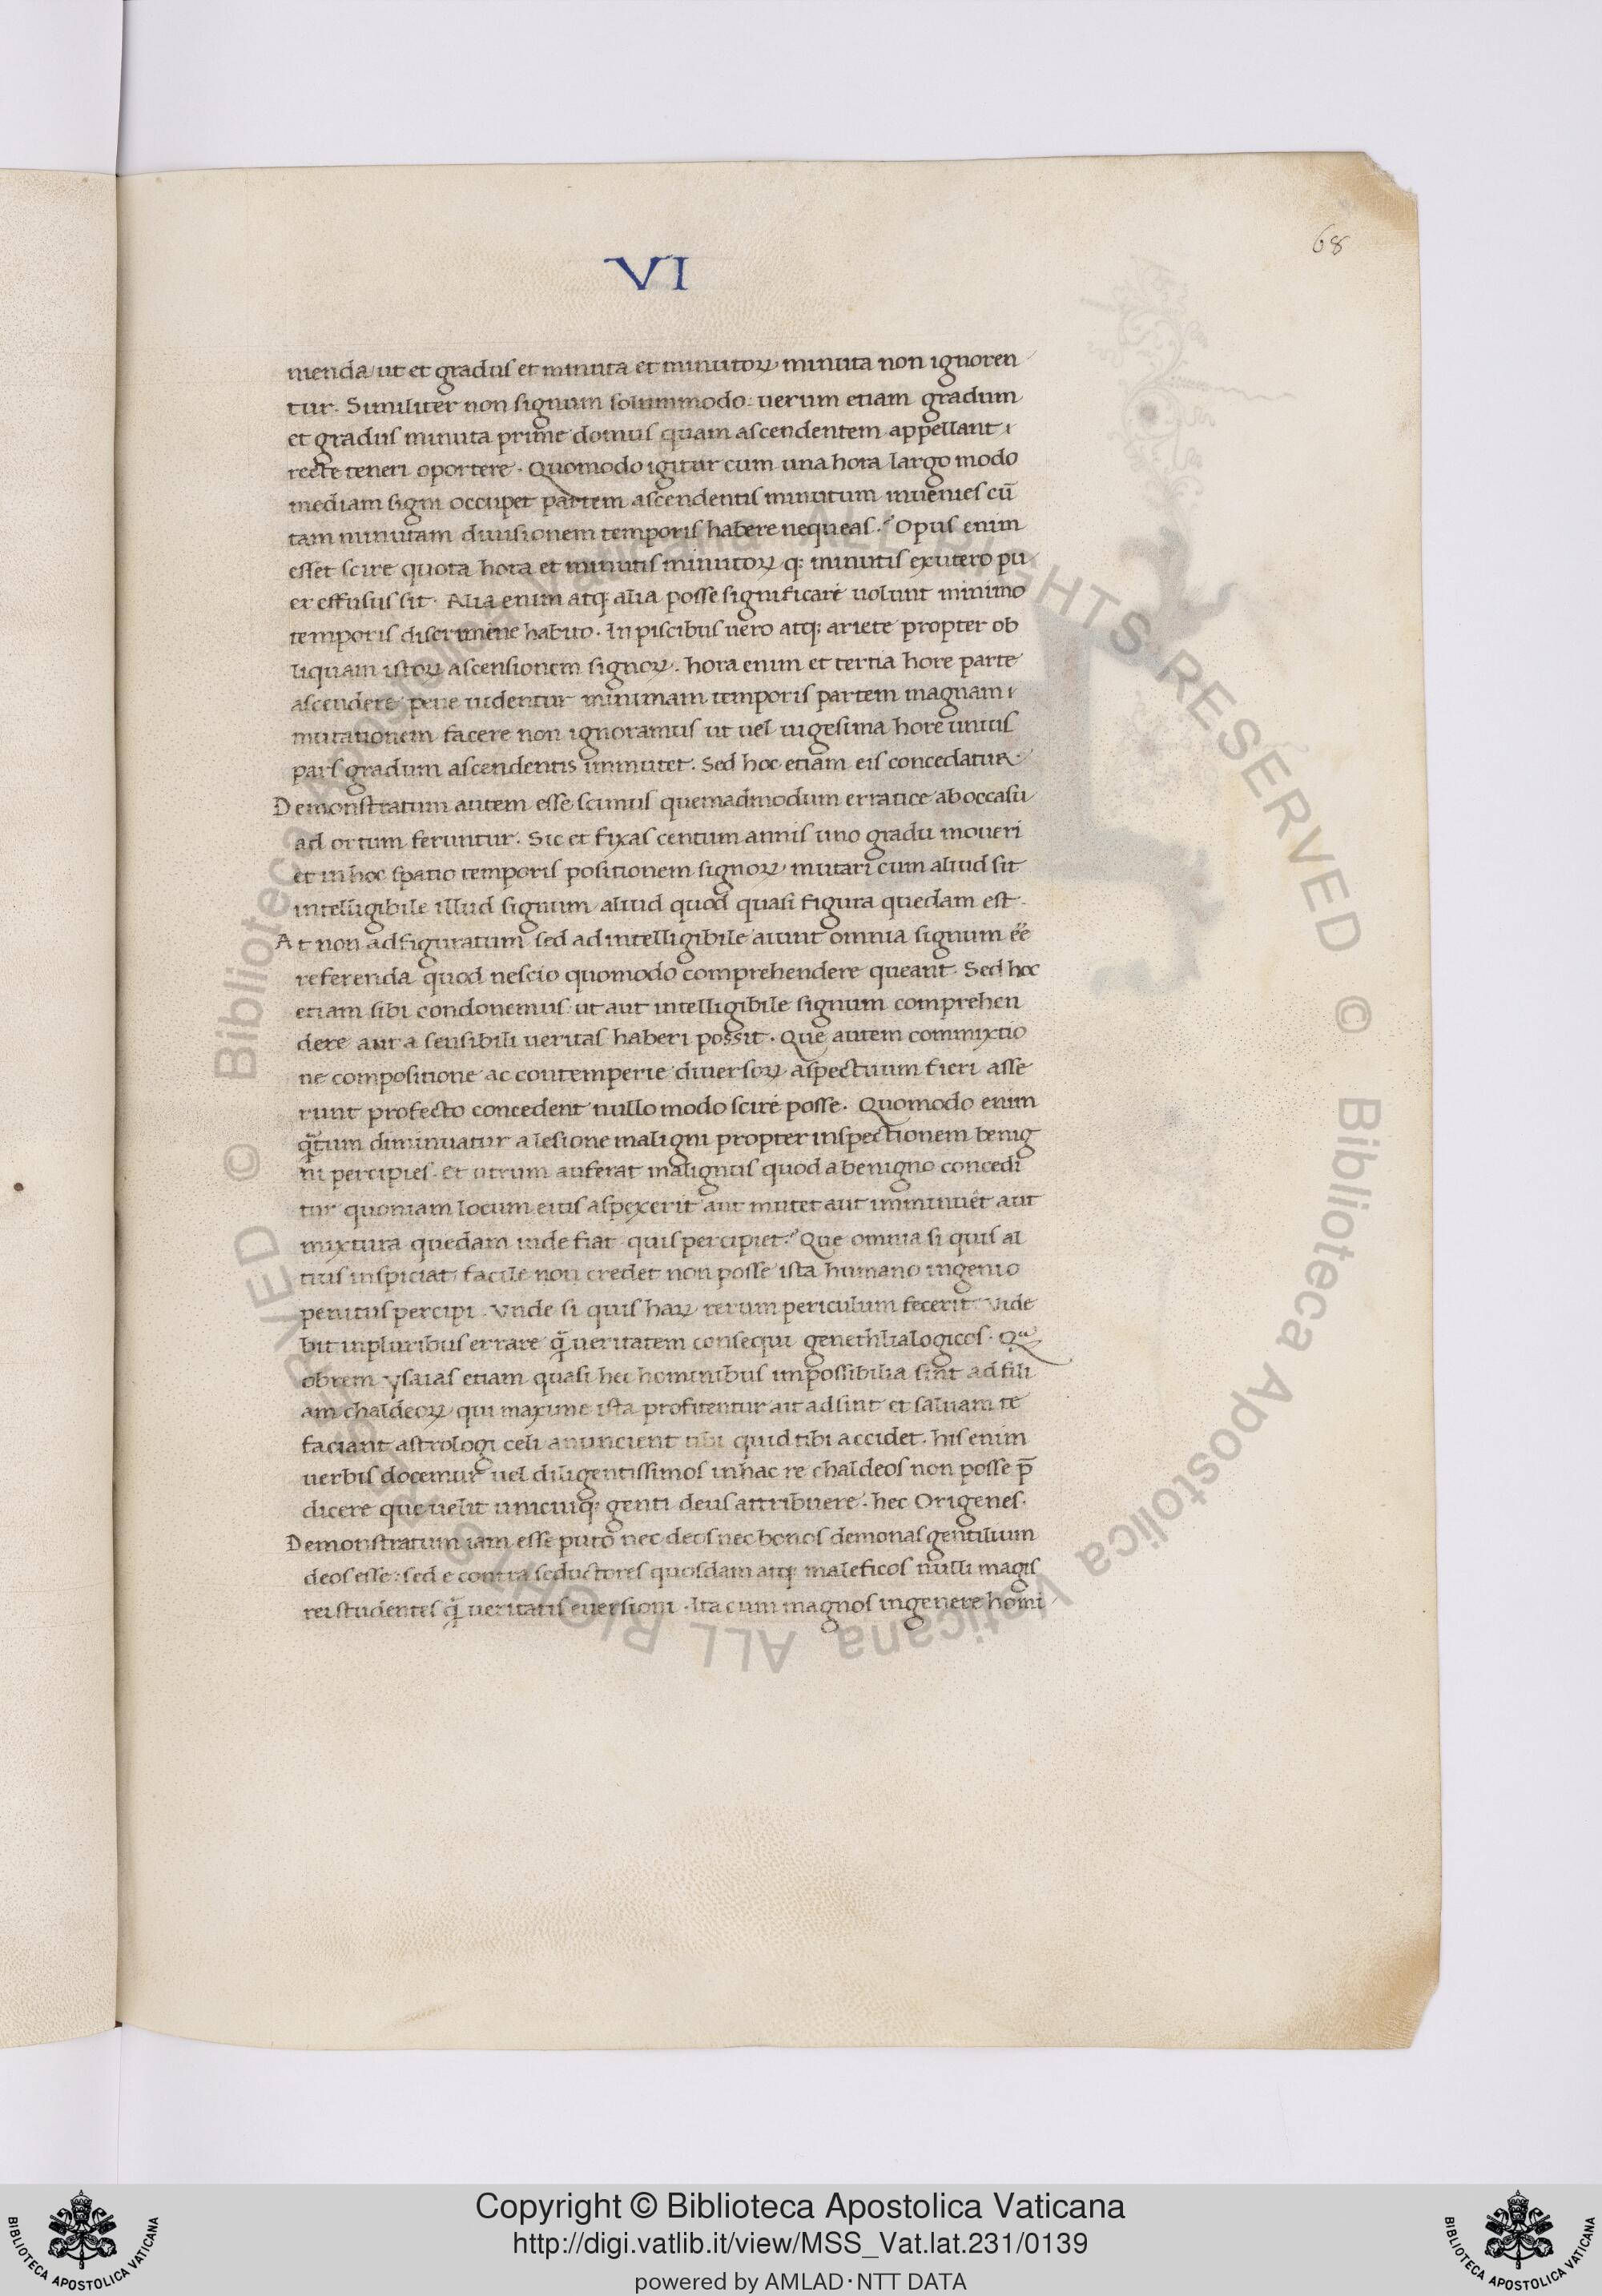 68
VI
nienda ut et gradus et minuta et minutoꝝ minuta non ignoren
tur. Similiter non signum solummodo: uerum etiam gradum
et gradus minuta prime domus quam ascendentem appellant
recte teneri oportere. Quomodo igitur cum una hora largo modo
mediam signi occupet partem ascendentis minutum inuenies cū
tam minutam diuisionem temporis habere nequeas? Opus enim
esset scire quota hora et minutis minutoꝝ q: minutis ex utero pu
er effusus sit. Alia enim atq: alia posse significare uolunt minimo
temporis discrimine habito. In piscibus uero atq: ariete propter ob
liquam istoꝝ ascensionem signoꝝ. hora enim et tertia hore parte
ascendere pene uidentur minimam temporis partem magnam
mutationem facere non ignoramus ut uel uigesima hore unius
pars gradum ascendentis inmutet. Sed hoc etiam eis concedatur.
Demonstratum autem esse scimus quemadmodum erratice ab occasu
ad ortum feruntur. Sic et fixas centum annis uno gradu moueri
et in hoc spatio temporis positionem signoꝝ mutari cum aliud sit
intelligibile illud signum aliud quod quasi figura quedam est.
At non ad figuratum sed ad intelligibile aiunt omnia signum eē
referenda quod nescio quomodo comprehendere queant. Sed hoc
etiam sibi condonemus ut aut intelligibile signum comprehen
dere aut a sensibili ueritas haberi possit. Que autem commixtio
ne compositione ac contemperie diuersoꝝ aspectuum fieri asse
runt profecto concedent nullo modo scire posse. Quomodo enim
q̄tum diminuatur a lesione maligni propter inspectionem benig
ni percipies. Et utrum auferat malignus quod a benigno concedi
tur quoniam locum eius aspexerit aut mutet aut imminuet aut
mixtura quedam inde fiat quis percipiet? Que omnia si quis al
tius inspiciat facile non credet non posse ista humano ingenio
penitus percipi. Vnde si quis haꝝ rerum periculum fecerit uide
bit in pluribus errare q̄ ueritatem consequi genethlialogicos. Qua
obrem ysaias etiam quasi hec hominibus impossibilia sint ad fili
am chaldeoꝝ qui maxime ista profitentur ait adsint et saluam te
faciant astrologi celi anuncient tibi quid tibi accidet. his enim
uerbis docemur uel diligentissimos in hac re chaldeos non posse p̄
dicere que uelit unicuiq: genti deus attribuere. hec Origenes.
Demonstratum iam esse puto nec deos nec bonos demonas gentilium
deos esse: sed e contra seductores quosdam atq: maleficos nulli magis
rei studentes q̄ ueritatis euersioni. Ita cum magnos in genere homi
© Biblioteca Apostolica Vaticana ALL RIGHTS RESERVED © Biblioteca Apostolica Vaticana ALL RIGHTS RESERVED
BIBLIOTECA APOSTOLICA VATICANA
Copyright © Biblioteca Apostolica Vaticana
http://digi.vatlib.it/view/MSS_Vat.lat.231/0139
powered by AMLAD·NTT DATA
BIBLIOTECA APOSTOLICA VATICANA